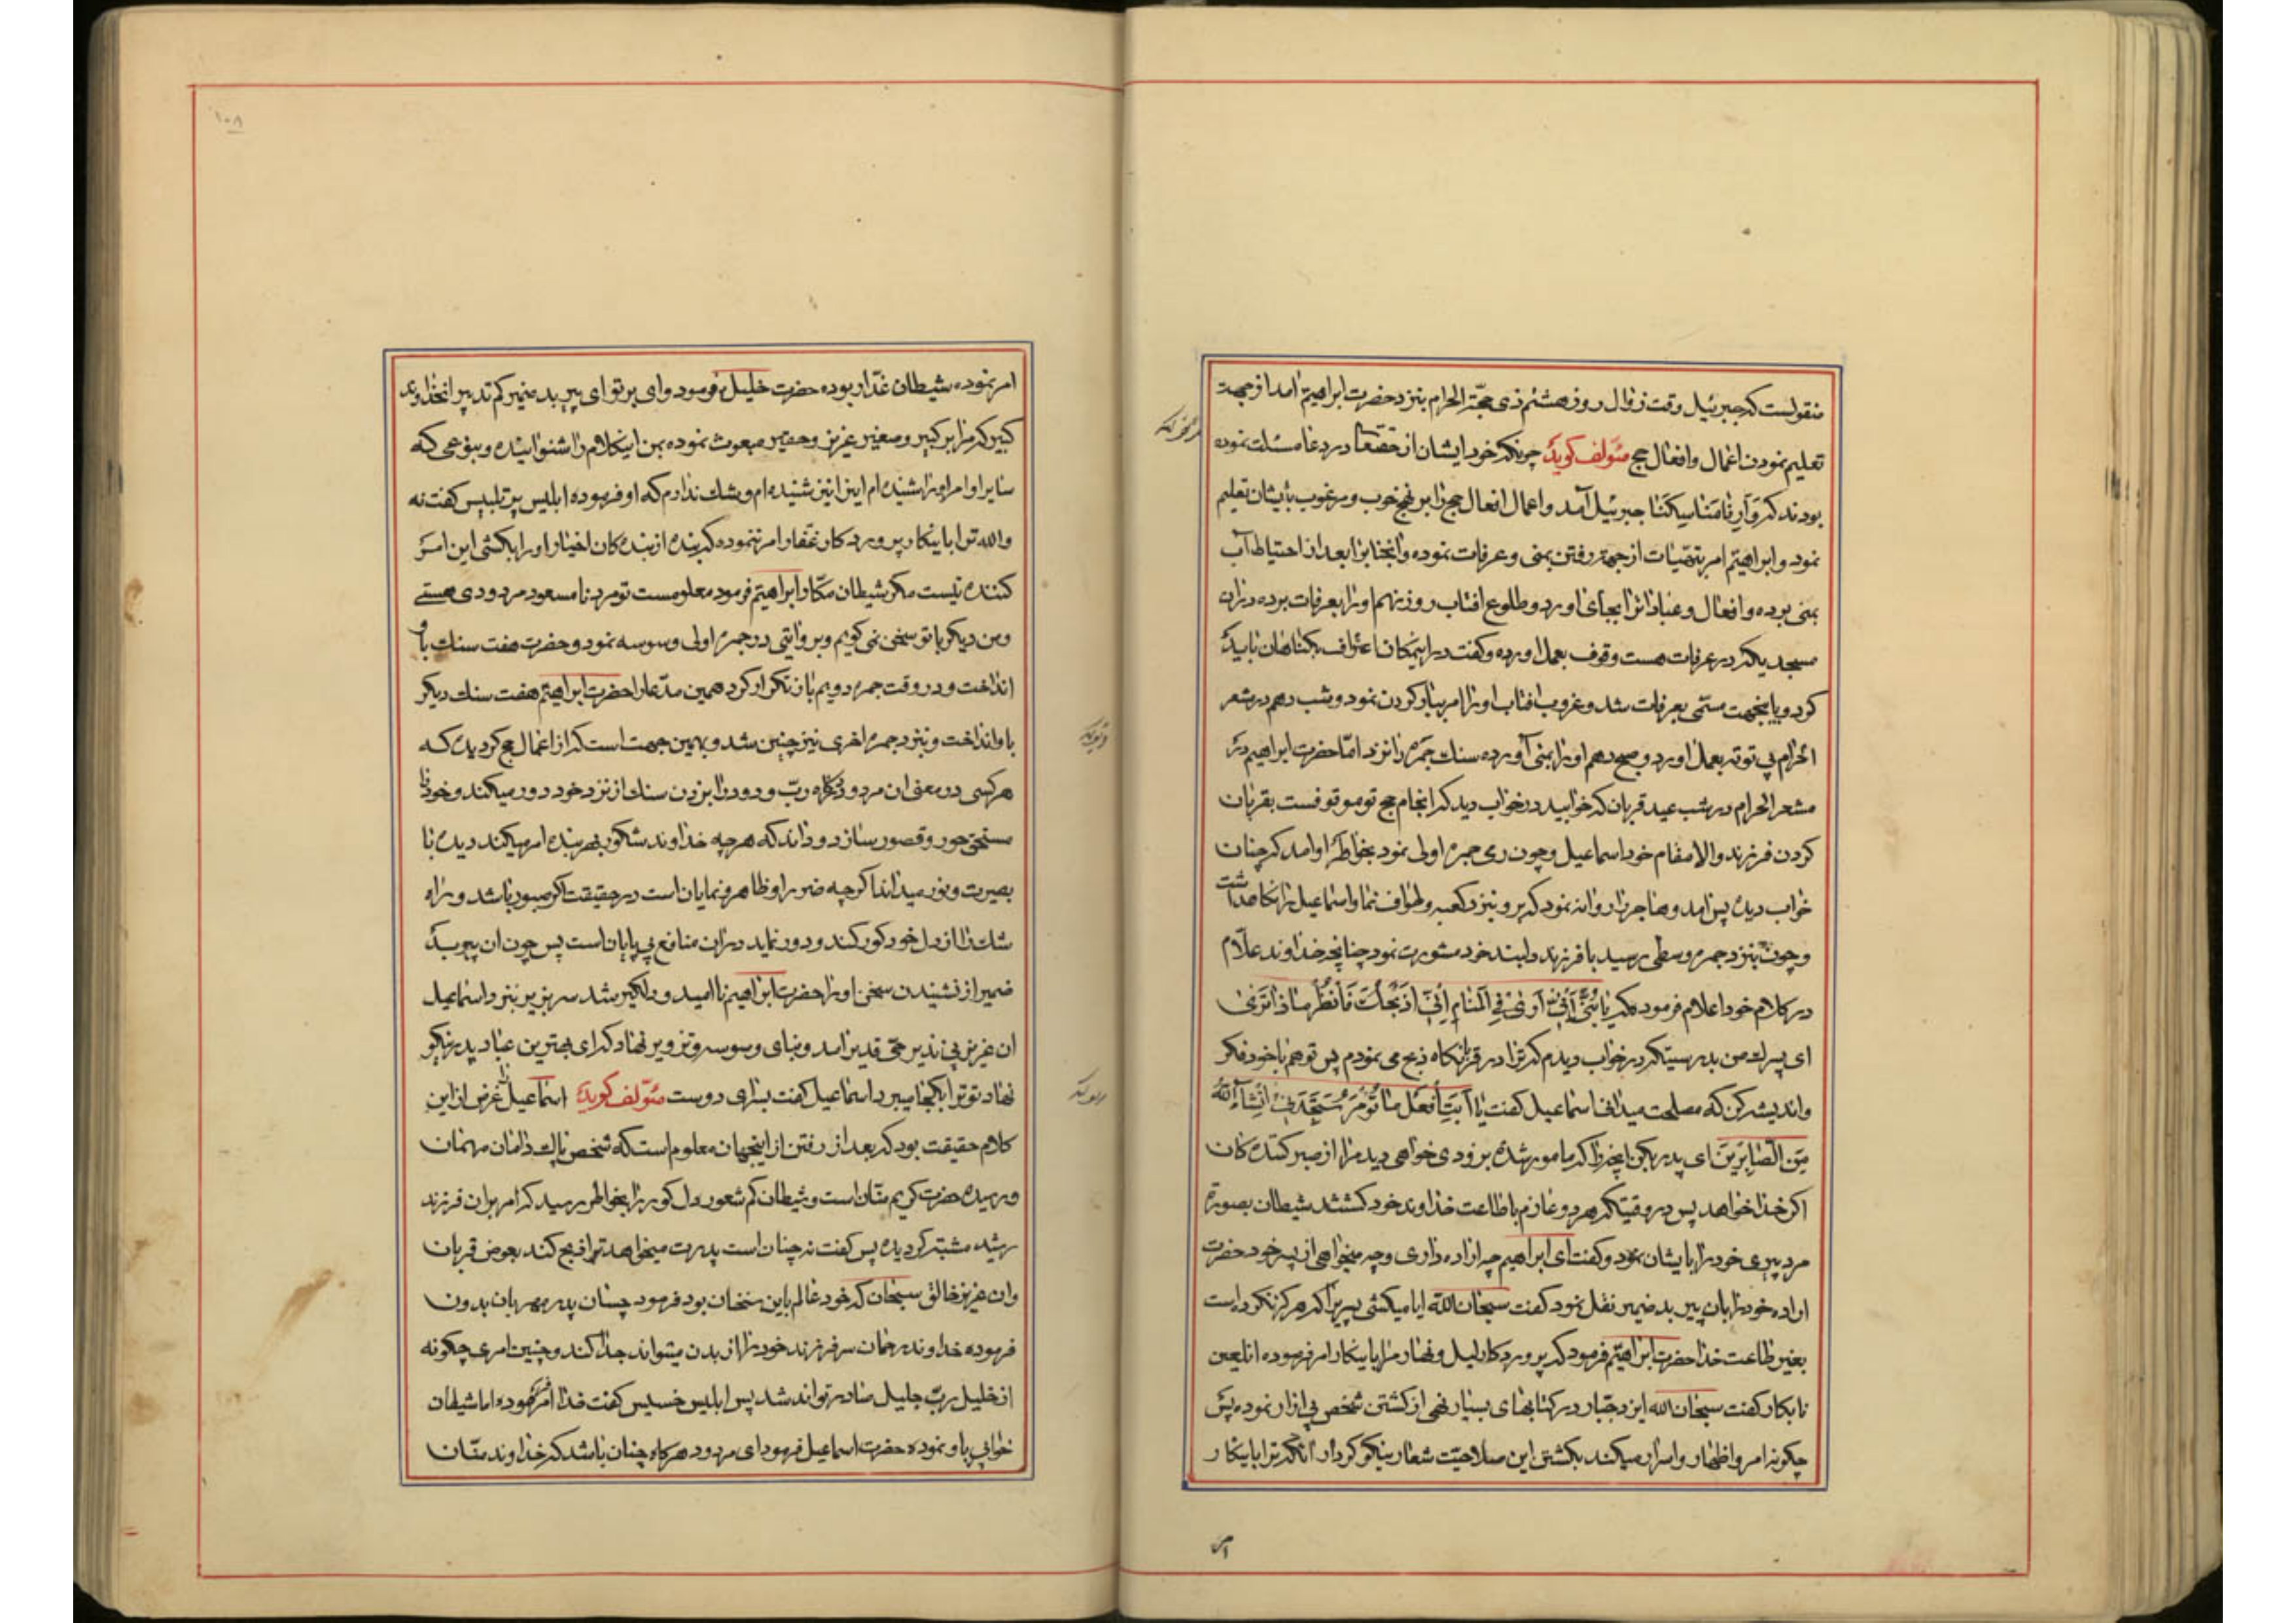 منقولست که جبرئیل وقت زوال روز هشتم ذی حجة الحرام بنزد حضرت ابراهیم آمد از جهت
تعلیم نمودن اعمال و افعال حج مئولف کوید چونکه خود ایشان از حقتعا در دعا مسئلت نموده
بودند که و آرنا مناسکنا جبرئیل آمد و اعمال افعال حج را بر نهج خوب و مرغوب بایشان تعلیم
نمود و ابراهیم امر از جهة رفتن بمنی و عرفات نموده و انجنابرا بعد از احتیاط آب
بمنی برده و افعال و عباداترا بجای اورد و طلوع افتاب روز نهم اورا بعرفات برده در ان
مسجدیکه در عرفات هست وقوف بعمل اورده و کفت در اینمکان اعتراف بکناهان باید
کرد و باینجهت مسمی بعرفات شد و غروب افتاب اورا امر ببار کردن نمود و شب دهم در مشعر
الحرام بی توته بعمل اورد و صبح دهم اورا بمنی آورده سنك جمره را نزد اما حضرت ابراهیم در
مشعر الحرام در شب عید قربان که خوابید در خواب دید که انجام حج تو موقوفست بقربان
کردن فرزند والا مقام خود اسماعیل و چون رمی جمره اولی نمود بخاطر او امد که چنان
خواب دیده پس امد و هاجر را روانه نمود که برو بنزد کعبه و طواف نما و اسماعیل را نکاهداشت
و چون بنزد جمره وسطی رسید با فرزند دلبند خود مشورت نمود چنانچه خداوند علام
در کلام خود اعلام فرمود که یا بنی انی اری فی المنام انی اذبحك فانظر ماذا تری
ای پسرك من بدرستیکه در خواب دیدم که ترا در قربانکاه ذبح می نمودم پس تو هم با خود فکر
و اندیشه کن که مصلحت میدانی اسماعیل کفت یا ابت افعل ما تؤمر ستجدنی انشاء الله
من الصابرین ای پدر بکن انچه را که مامور شده بزودی خواهی دید مرا از صبر کننده کان
اکر خدا خواهد پس در وقتیکه هر دو عازم باطاعت خداوند خود کشتند شیطان بصورة
مرد پیری خود را بایشان نمود و کفت ای ابراهیم چه اراده داری و چه میخواهی از پسر خود حضرت
اراده خود را بان پیر بد ضمیر نقل نمود کفت سبحان الله ایا میکشی پسریرا که هرکز نکرده است
بغیر طاعت خدا حضرت ابراهیم فرمود که پروردکار لیل و نهار مرا باینکار امر فرموده ان لعین
نابکار کفت سبحان الله ایزد جبار در کتابهای بسیار نهی از کشتن شخص بی ازار نموده پس
چکونه امر و اظهار و اسرار میکند بکشتن این صلاحیت شعار نیکو کردار انکه ترا باینکار
امر
امر نموده شیطان غدار بوده حضرت خلیل فرمود وای بر تو ای پیر بد ضمیر کم تدبیر انخداوند
کبیر که مرا بر کبیر و صغیر عزیز و حقیر مبعوث نموده بمن اینکلام را شنوانیده و بنوعی که
سایر اوامر او را شنیده ام اینرا نیز شنیده ام و شك ندارم که او فرموده ابلیس پر تلبیس کفت نه
والله ترا باینکار پروردکار غفار امر ننموده که بنده از بنده کان اخیار او را بکشی این امر
کننده نیست مکر شیطان مکار ابراهیم فرمود معلومست تو مرد نامسعود مردودی هستی
و من دیکر با تو سخن نمی کویم و بروایتی در جمره اولی وسوسه نمود و حضرت هفت سنك باو
انداخت و در وقت جمره دویم باز تکرار کرد همین مدعا را حضرت ابراهیم هفت سنك دیکر
باو انداخت و بنزد جمره اخری نیز چنین شد و بهمین جهت است که از اعمال حج کردیده که
هر کسی در معنی ان مردود درکاه رب ودود را بزدن سنك از نزد خود دور میکند و خود را
مستحق حور و قصور سازد و داند که هرچه خداوند شکور بهر بنده امر میکند دیده با
بصیرت و نور میداند اکرچه ضرر او ظاهر و نمایان است در حقیقت اکر صبور باشد و راه
شك را از دل خود کور کند و دور نماید در ان منافع بی پایان است پس چون ان پیر بد
ضمیر از نشنیدن سخن او را حضرت ابراهیم ناامید و دلکیر شد سر بزیر بنزد اسماعیل
ان عزیز بی نذیر حی قدیر امد و بنای وسوسه و تزویر نهاد که ای بهترین عباد پدر نیکو
نهاد تو ترا بکجا میبرد اسماعیل کفت بسرای دوست مئولف کوید اسماعیل را غرض از این
کلام حقیقت بود که بعد از رفتن از اینجهان معلوم است که شخص پاك دامان مهمان
و رسیده حضرت کریم منان است و شیطان کم شعور دل کور را بخاطر رسید که امر بران فرزند
رشید مشتبه کردیده پس کفت نه چنان است پدرت میخواهد ترا ذبح کند بعوض قربان
و ان عزیز خالق سبحان که خود عالم باین سخنان بود فرمود چسان پدر مهربان بدون
فرموده خداوند رحمان سر فرزند خود را از بدن میتواند جدا کند و چنین امری چکونه
از خلیل رب جلیل صادر تواند شد پس ابلیس خسیس کفت خدا امر فرموده اما شیطان
خوابی باو نموده حضرت اسماعیل فرمود ای مردود هرکاه چنان باشد که خداوند منان
۱۰۸